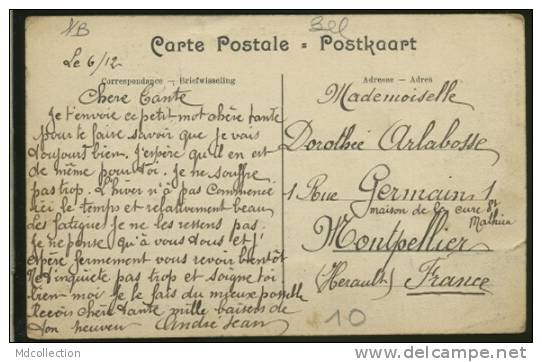 NB
Bel
Le 6/12
Carte Postale = Postkaart
Correspondance — Briefwisseling
Adresse — Adres
Chère tante
Je t'envoie ce petit mot chère tante
pour te faire savoir que je vais
toujours bien. J'espère qu'il en est
de même pour toi. Je ne souffre
pas trop. L'hiver n'a pas commencé
ici le temps et relativement beau
Les fatigues je ne les ressens pas.
Je ne pense qu'à vous tous et j'
espère fermement vous revoir bientôt
Ne t'inquiète pas trop et soigne toi
bien moi je le fais du mieux possible
Reçois chère tante mille baisers de
ton neuveu André Jean
Mademoiselle
Dorothée Arlabosse
1 Rue Germain 1
maison de la cure St
Mathieu
Montpellier
(Herault) France
10
MDCollection
www.delcampe.net